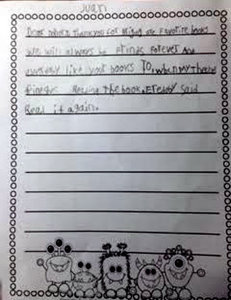 Juan
Dear Robert, thank you for Miguel are Favorite books
We will always be Friends Forever And
like your books TO, when my
Finishes Reading The book, Everybody Said
Read it again.